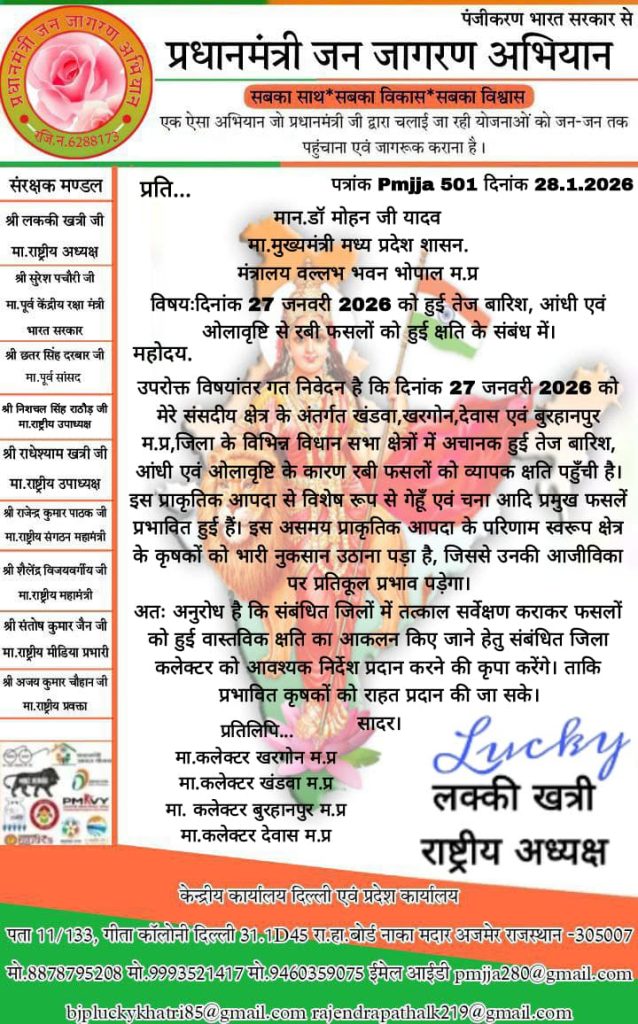 पंजीकरण भारत सरकार से
प्रधानमंत्री जन जागरण अभियान
प्रधानमंत्री जन जागरण अभियान
रजि.न.6288173
सबका साथ*सबका विकास*सबका विश्वास
एक ऐसा अभियान जो प्रधानमंत्री जी द्वारा चलाई जा रही योजनाओं को जन-जन तक
पहुंचाना एवं जागरूक कराना है।
संरक्षक मण्डल
श्री लककी खत्री जी
मा.राष्ट्रीय अध्यक्ष
श्री सुरेश पचौरी जी
मा.पूर्व केंद्रीय रक्षा मंत्री
भारत सरकार
श्री छतर सिंह दरबार जी
मा.पूर्व सांसद
श्री निशचल सिंह राठौड़ जी
मा.राष्ट्रीय उपाध्यक्ष
श्री राधेश्याम खत्री जी
मा.राष्ट्रीय उपाध्यक्ष
श्री राजेन्द्र कुमार पाठक जी
मा.राष्ट्रीय संगठन महामंत्री
श्री शैलेंद्र विजयवर्गीय जी
मा.राष्ट्रीय महामंत्री
श्री संतोष कुमार जैन जी
मा.राष्ट्रीय मीडिया प्रभारी
श्री अजय कुमार चौहान जी
मा.राष्ट्रीय प्रवक्ता
PMKVY
प्रति...
पत्रांक Pmjja 501 दिनांक 28.1.2026
मान.डॉ मोहन जी यादव
मा.मुख्यमंत्री मध्य प्रदेश शासन.
मंत्रालय वल्लभ भवन भोपाल म.प्र
विषय:दिनांक 27 जनवरी 2026 को हुई तेज बारिश, आंधी एवं
ओलावृष्टि से रबी फसलों को हुई क्षति के संबंध में।
महोदय.
उपरोक्त विषयांतर गत निवेदन है कि दिनांक 27 जनवरी 2026 को
मेरे संसदीय क्षेत्र के अंतर्गत खंडवा,खरगोन,देवास एवं बुरहानपुर
म.प्र,जिला के विभिन्न विधान सभा क्षेत्रों में अचानक हुई तेज बारिश,
आंधी एवं ओलावृष्टि के कारण रबी फसलों को व्यापक क्षति पहुँची है।
इस प्राकृतिक आपदा से विशेष रूप से गेहूँ एवं चना आदि प्रमुख फसलें
प्रभावित हुई हैं। इस असमय प्राकृतिक आपदा के परिणाम स्वरूप क्षेत्र
के कृषकों को भारी नुकसान उठाना पड़ा है, जिससे उनकी आजीविका
पर प्रतिकूल प्रभाव पड़ेगा।
अतः अनुरोध है कि संबंधित जिलों में तत्काल सर्वेक्षण कराकर फसलों
को हुई वास्तविक क्षति का आकलन किए जाने हेतु संबंधित जिला
कलेक्टर को आवश्यक निर्देश प्रदान करने की कृपा करेंगे। ताकि
प्रभावित कृषकों को राहत प्रदान की जा सके।
सादर।
प्रतिलिपि...
मा.कलेक्टर खरगोन म.प्र
मा.कलेक्टर खंडवा म.प्र
मा. कलेक्टर बुरहानपुर म.प्र
मा.कलेक्टर देवास म.प्र
Lucky
लक्की खत्री
राष्ट्रीय अध्यक्ष
केन्द्रीय कार्यालय दिल्ली एवं प्रदेश कार्यालय
पता 11/133, गीता कॉलोनी दिल्ली 31.1D45 रा.हा.बोर्ड नाका मदार अजमेर राजस्थान -305007
मो.8878795208 मो.9993521417 मो.9460359075 ईमेल आईडी pmjja280@gmail.com
bjpluckykhatri85@gmail.com rajendrapathalk219@gmail.com